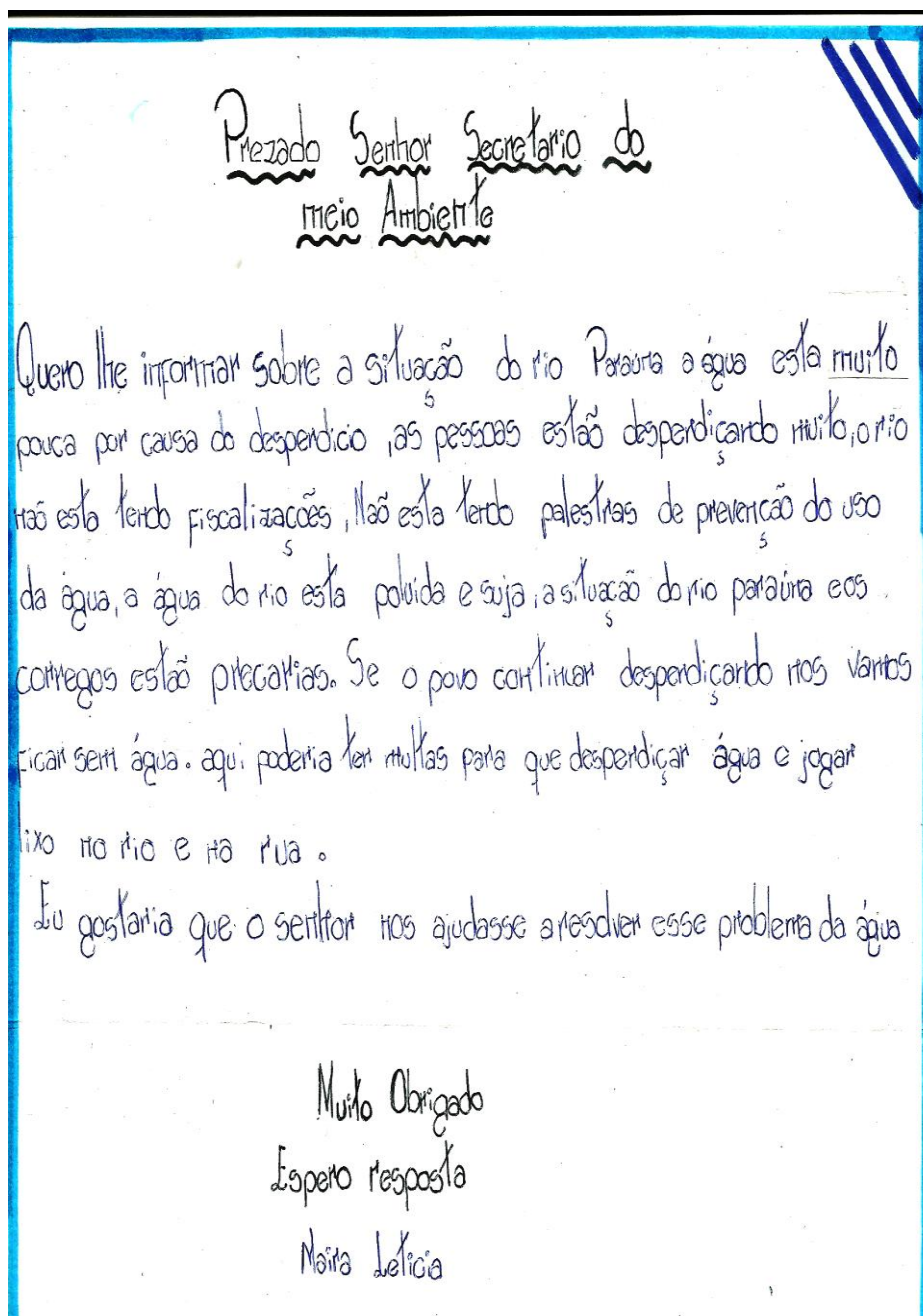 Prezado Senhor Secretario do
meio Ambiente
Quero lhe informar sobre a situação do rio Paraúna a água esta muito
pouca por causa do desperdício, as pessoas estão desperdiçando muito, o rio
não esta tendo fiscalizações, Não esta tendo palestras de prevenção do uso
da água, a água do rio esta poluida e suja, a situação do rio paraúna e os
corregos estão precarias. Se o povo continuar desperdiçando nos vamos
ficar sem água. aqui poderia ter multas para que desperdiçar água e jogar
lixo no rio e na rua.
Eu gostaria que o senhor nos ajudasse a resolver esse problema da água
Muito Obrigado
Espero resposta
Maira Leticia